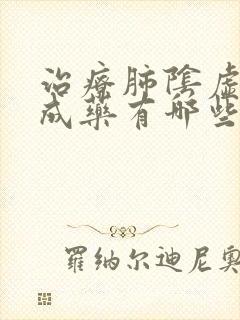 治療肺陰虛
成藥有哪些
羅纳尔迪尼奥